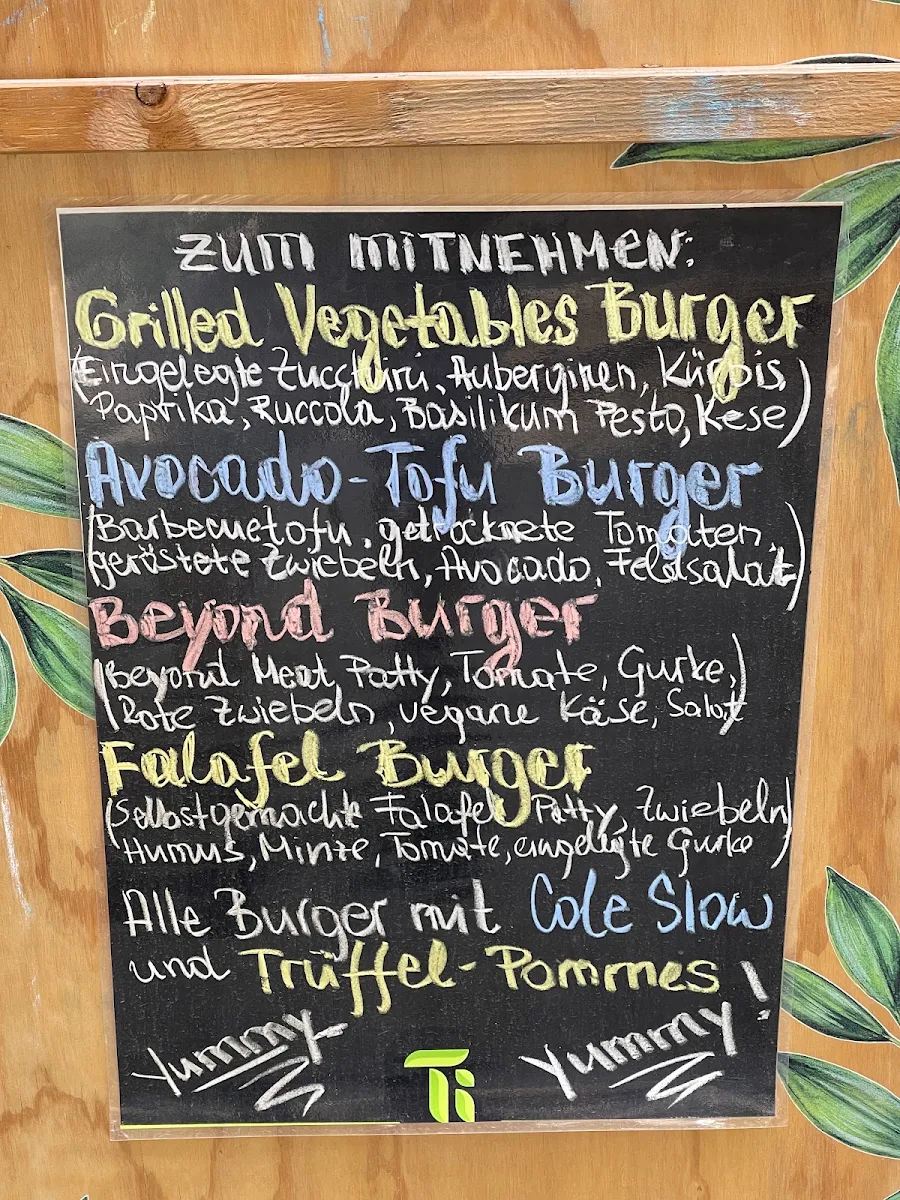 ZUM MITNEHMEN:
Grilled Vegetables Burger
(Eingelegte Zucchini, Auberginen, Kürbis
Paprika, Ruccola, Basilikum Pesto, Kese)
Avocado-Tofu Burger
(Barbecuetofu, getrocknete Tomaten,
geröstete Zwiebeln, Avocado, Feldsalat)
Beyond Burger
(Beyond Meat Patty, Tomate, Gurke,
Rote Zwiebeln, vegane Käse, Salat)
Falafel Burger
(Selbstgemachte Falafel Patty, Zwiebeln
Humus, Minze, Tomate, eingelegte Gurke)
Alle Burger mit Cole Slow
und Trüffel-Pommes
Yummy Yummy!
Ti